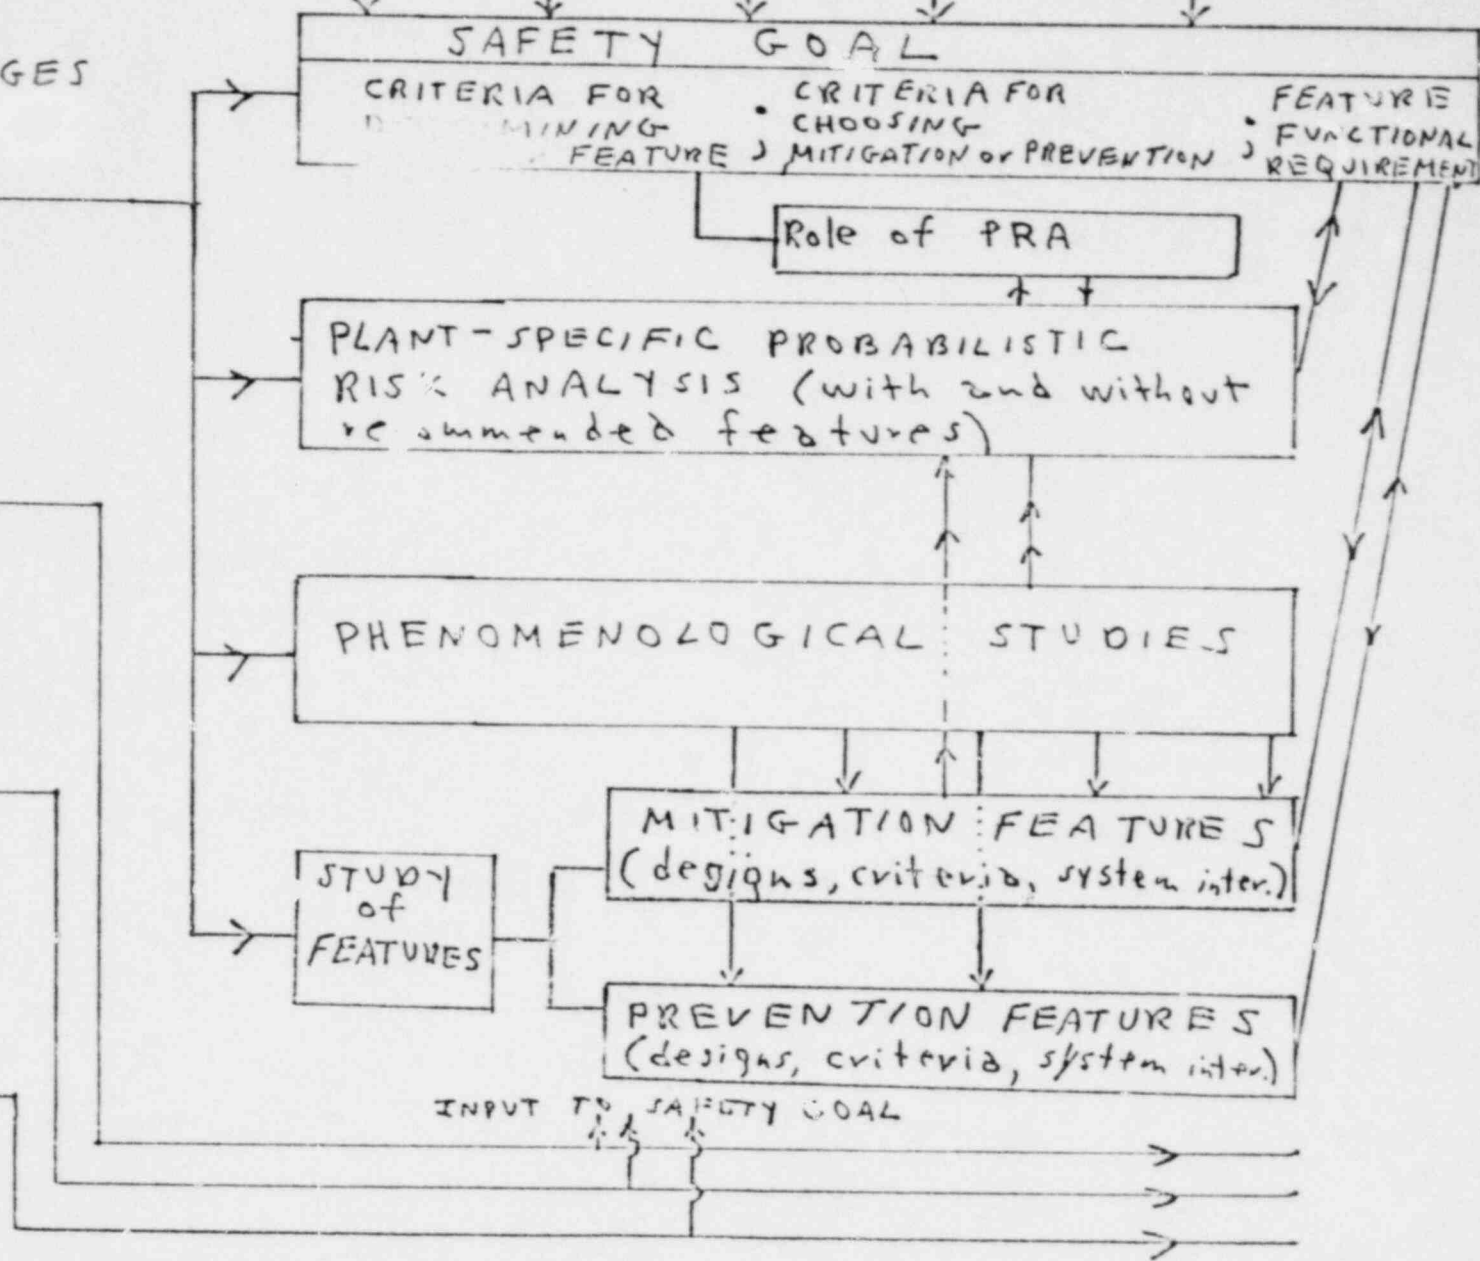 SAFETY GOAL
GES
CRITERIA FOR
MINING
FEATURE ;
CRITERIA FOR
CHOOSING
MITIGATION or PREVENTION ;
FEATURE
FUNCTIONAL
REQUIREMENT
Role of PRA
PLANT-SPECIFIC PROBABILISTIC
RISK ANALYSIS (with and without
recommended features)
PHENOMENOLOGICAL STUDIES
MITIGATION FEATURES
(designs, criteria, system inter.)
STUDY
of
FEATURES
PREVENTION FEATURES
(designs, criteria, system inter.)
INPUT TO SAFETY GOAL